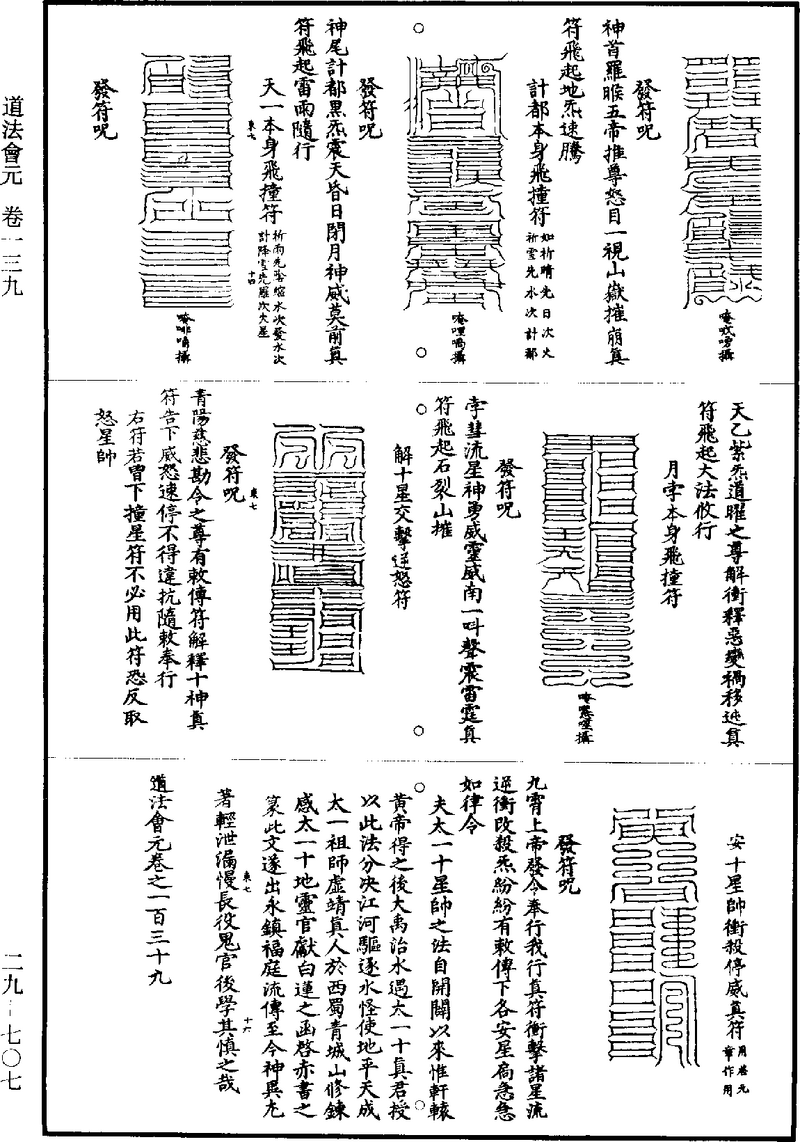 道法會元 卷一三九
二九－七〇七
唵吰嘮攝
發符呪
神首羅睺五帝推尊怒目一視山嶽摧崩真
符飛起地炁速騰
計都本身飛撞符 如祈晴先日次火
祈雪先水次計都
唵哩嘀攝
發符呪
神尾計都黑炁震天昏日閉月神威莫前真
符飛起雷雨隨行
天一本身飛撞符 祈雨先
計降雪先羅次火星
發符呪
天乙紫炁道曜之尊解衝釋惡變禍移迍真
符飛起大法攸行
月孛本身飛撞符
發符呪
孛彗流星神勇威靈威南一叫聲震雷霆真
符飛起石裂山摧
解十星交擊逆怒符
發符呪
青陽慈悲勘令之尊有敕傳符解釋十神真
符告下威怒速停不得違抗隨敕奉行
右符若曾下撞星符不必用此符恐反取
怒星帥
安十星帥衝殺停威真符 用啓元
章作用
發符呪
九霄上帝發令奉行我行真符衝擊諸星流
逆衝改殺炁紛紛有敕傳下各安星扃急急
如律令
夫太一十星帥之法自開闢以來惟軒轅
黃帝得之後大禹治水遇太一十真君授
以此法分決江河驅逐水怪使地平天成
太一祖師虛靖真人於西蜀青城山修鍊
感太一十地靈官獻白蓮之函啓赤書之
篆此文遂出永鎮福庭流傳至今神異尤
著輕泄漏慢長役鬼官後學其慎之哉
道法會元卷之一百三十九